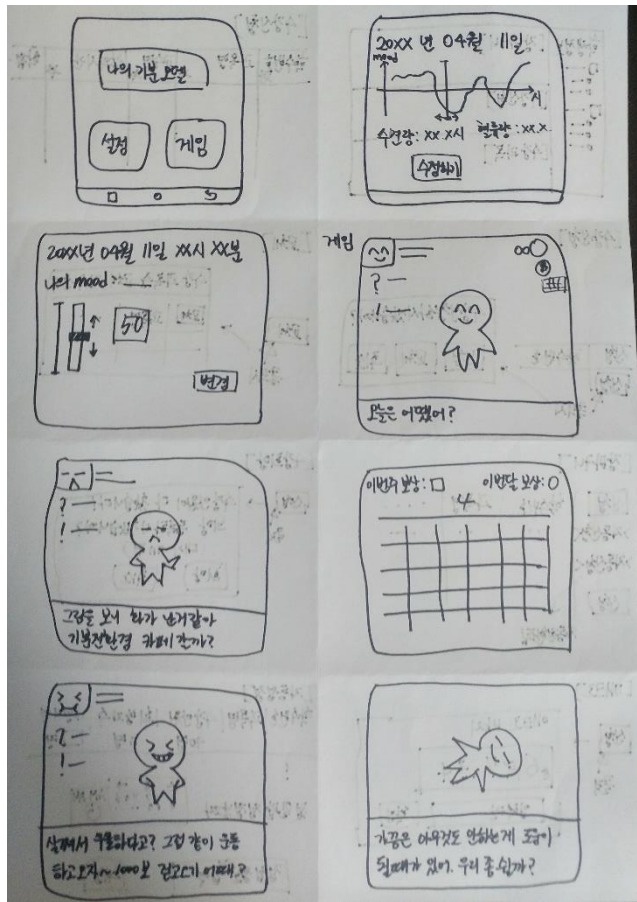 나의 기분 모델
설정
게임
20XX 년 04월 11일
mood
시
수면량: XX.X시
활동량: XX.X
수정하기
20XX년 04월 11일 XX시 XX분
나의 mood:
50
변경
게임
?
!
오늘은 어땠어?
?
!
그림을 보니 화가 난거같아
기분전환겸 카페 갈까?
이번주 보상:
이번달 보상:
4
?
!
살쪄서 우울하다고? 그럼 같이 운동
하고오자~ 1000보 걷고오기 어때?
가끔은 아무것도 안하는게 도움이
될때가 있어. 우리 좀 쉴까?